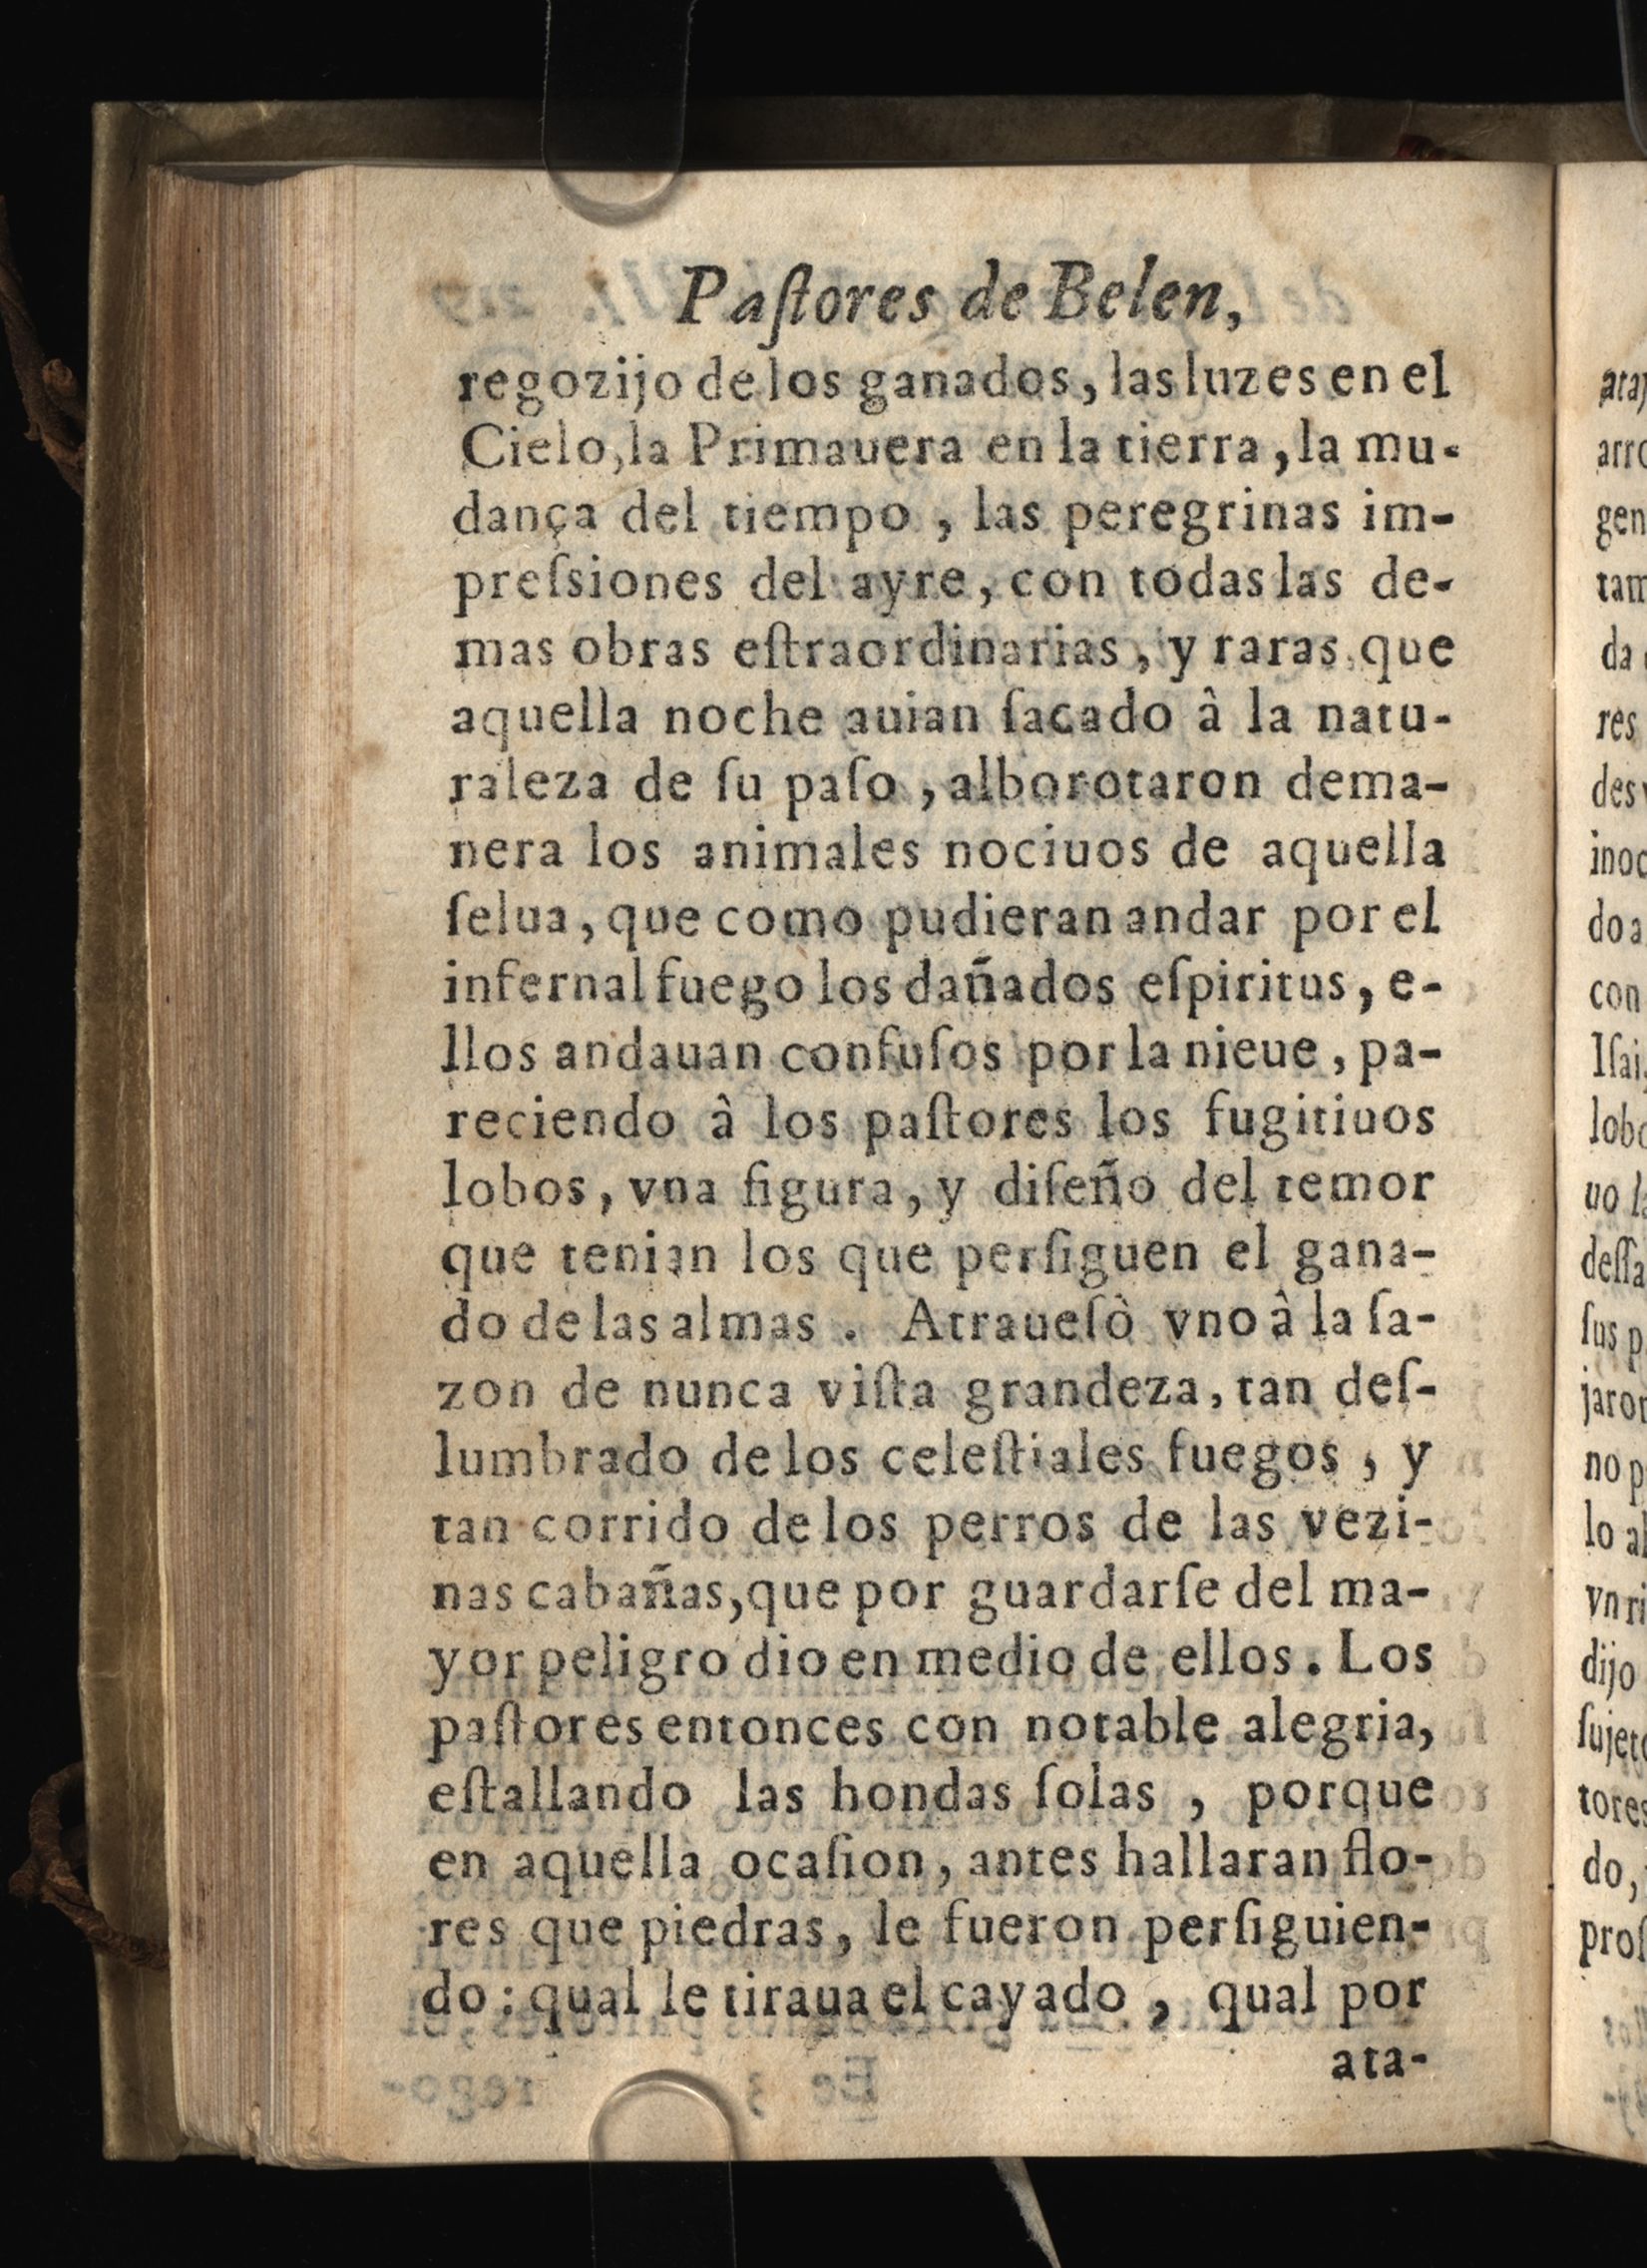 Paſtores de Belen,
regozijo de los ganados, las luzes en el
Cielo, la Primauera en la tierra, la mu-
dança del tiempo, las peregrinas im-
preſsiones del ayre, con todas las de-
mas obras eſtraordinarias, y raras que
aquella noche auian ſacado â la natu-
raleza de ſu paſo, alborotaron dema-
nera los animales nociuos de aquella
ſelua, que como pudieran andar por el
infernal fuego los dañados eſpiritus, e-
llos andauan confuſos por la nieue, pa-
reciendo â los paſtores los fugitiuos
lobos, vna figura, y diſeño del temor
que tenian los que perſiguen el gana-
do de las almas. Atraueſò vno â la ſa-
zon de nunca viſta grandeza, tan deſ-
lumbrado de los celeſtiales fuegos, y
tan corrido de los perros de las vezi-
nas cabañas, que por guardarſe del ma-
yor peligro dio en medio de ellos. Los
paſtores entonces con notable alegria,
eſtallando las hondas ſolas, porque
en aquella ocaſion, antes hallaran flo-
res que piedras, le fueron perſiguien-
do: qual le tiraua el cayado, qual por
ata-